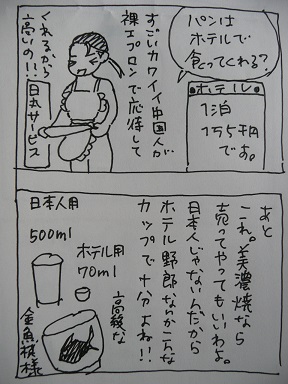 パンは
ホテルで
食ってくれる?
ホテル
1泊
1万5千円
です。
すごいカワイイ中国人が
裸エプロンで応待して
くれるから
高いの!!
日丸サービス
あと
これ。美濃焼なら
売ってやってもいいわよ。
日本人じゃないんだから
ホテル野郎ならこんな
カップで十分よね!!
日本人用
500ml
ホテル用
70ml
高級な
金魚鉢様